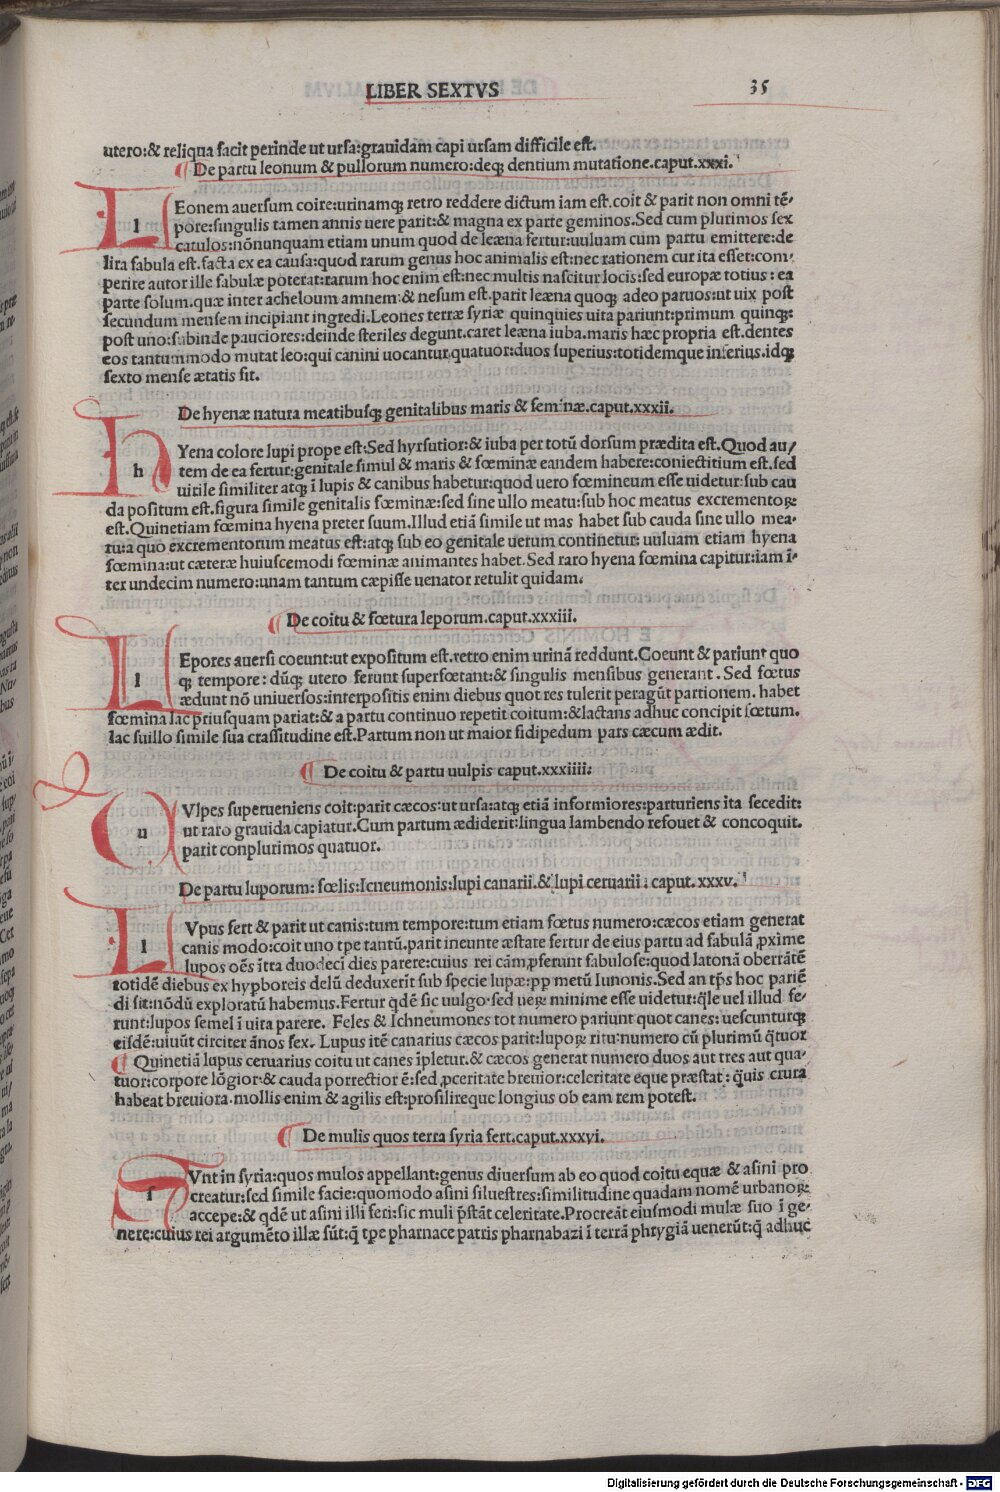 LIBER SEXTVS 35
utero:& reliqua facit perinde ut ursa:grauidam capi ursam difficile est.
De partu leonum & pullorum numero:deqʒ dentium mutatione.caput.xxxi.
LEonem auersum coire:urinamqʒ retro reddere dictum iam est.coit & parit non omni tē-
pore:singulis tamen annis uere parit:& magna ex parte geminos.Sed cum plurimos sex
catulos:nōnunquam etiam unum quod de leæna fertur:uuluam cum partu emittere:de
lira fabula est.facta ex ea causa:quod rarum genus hoc animalis est:nec rationem cur ita esset:com-
perire autor ille fabulæ poterat:rarum hoc enim est:nec multis nascitur locis:sed europæ totius:ea
parte solum.quæ inter acheloum amnem:& nesum est.parit leæna quoqʒ adeo paruos:ut uix post
secundum mensem incipiant ingredi.Leones terræ syriæ quinquies uita pariunt:primum quinqʒ:
post uno:subinde pauciores:deinde steriles degunt.caret leæna iuba.maris hæc propria est.dentes
eos tantummodo mutat leo:qui canini uocantur.quatuor:duos superius:totidemque inferius.idqʒ
sexto mense ætatis fit.
De hyenæ natura meatibusqʒ genitalibus maris & feminæ.caput.xxxii.
hYena colore lupi prope est:Sed hyrsutior:& iuba per totū dorsum prædita est.Quod au/
tem de ea fertur:genitale simul & maris & fœminæ eandem habere:coniectitium est.sed
uirile similiter atqʒ ī lupis & canibus habetur:quod uero fœmineum esse uidetur:sub cau
da positum est.figura simile genitalis fœminæ:sed sine ullo meatu:sub hoc meatus excrementoꝝ
est.Quinetiam fœmina hyena preter suum.Illud etiā simile ut mas habet sub cauda sine ullo mea-
tu:a quo excrementorum meatus est:atqʒ sub eo genitale uerum continetur: uuluam etiam hyena
fœmina:ut cæteræ huiuscemodi fœminæ animantes habet.Sed raro hyena fœmina capitur:iam ī-
ter undecim numero:unam tantum cæpisse uenator retulit quidam.
De coitu & fœtura leporum.caput.xxxiii.
LEpores auersi coeunt:ut expositum est.retro enim urinā reddunt.Coeunt & pariunt quo
qʒ tempore: dūqʒ utero ferunt superfœtant:& singulis mensibus generant. Sed fœtus
ædunt nō uniuersos:interpositis enim diebus quot res tulerit peragūt partionem. habet
fœmina lac priusquam pariat:& a partu continuo repetit coitum:&lactans adhuc concipit fœtum.
lac suillo simile sua crassitudine est.Partum non ut maior fidipedum pars cæcum ædit.
De coitu & partu uulpis caput.xxxiiii:
uVlpes superueniens coit:parit cæcos:ut ursa:atqʒ etiā informiores:parturiens ita secedit:
ut raro grauida capiatur.Cum partum ædiderit:lingua lambendo refouet & concoquit.
parit conplurimos quatuor.
De partu luporum: fœlis:Icneumonis:lupi canarii.& lupi ceruarii: caput.xxxv.
LVpus fert & parit ut canis:tum tempore:tum etiam fœtus numero:cæcos etiam generat
canis modo:coit uno tpe tantū.parit ineunte æstate fertur de eius partu ad fabulā ꝓxime
lupos oēs ītra duodecī dies parere:cuius rei cām ꝓferunt fabulose:quod latonā oberrātē
totidē diebus ex hypboreis delū deduxerit sub specie lupæ:pp metū Iunonis.Sed an tp̄s hoc pariē
di sit:nōdū exploratū habemus.Fertur qđē sic uulgo·sed ueꝝ minime esse uidetur:q̄le uel illud fe-
runt:lupos semel ī uita parere. Feles & Ichneumones tot numero pariunt quot canes: uescunturqʒ
eisdē:uiuūt circiter ānos sex. Lupus itē canarius cæcos parit:lupoꝝ ritu:numero cū plurimū q̄tuor
Quinetiā lupus ceruarius coitu ut canes īpletur.& cæcos generat numero duos aut tres aut qua-
tuor:corpore lōgior·& cauda porrectior ē:sed ꝓceritate breuior:celeritate eque præstat: q̄uis crura
habeat breuiora.mollis enim & agilis est:prosilireque longius ob eam rem potest.
De mulis quos terra syria fert.caput.xxxyi.
SVnt in syria:quos mulos appellant:genus diuersum ab eo quod coitu equæ & asini pro
creatur:sed simile facie:quomodo asini siluestres:similitudine quadam nomē urbanoꝝ
accepe:& qđē ut asini illi feri:sic muli p̄stāt celeritate.Procreāt eiusmodi mulæ suo ī ge-
nere:cuius rei argumēto illæ sūt:q̄ tpe pharnace patris pharnabazi ī terrā phrygiā uenerūt:q̄ adhuc
Digitalisierung gefördert durch die Deutsche Forschungsgemeinschaft - DFG